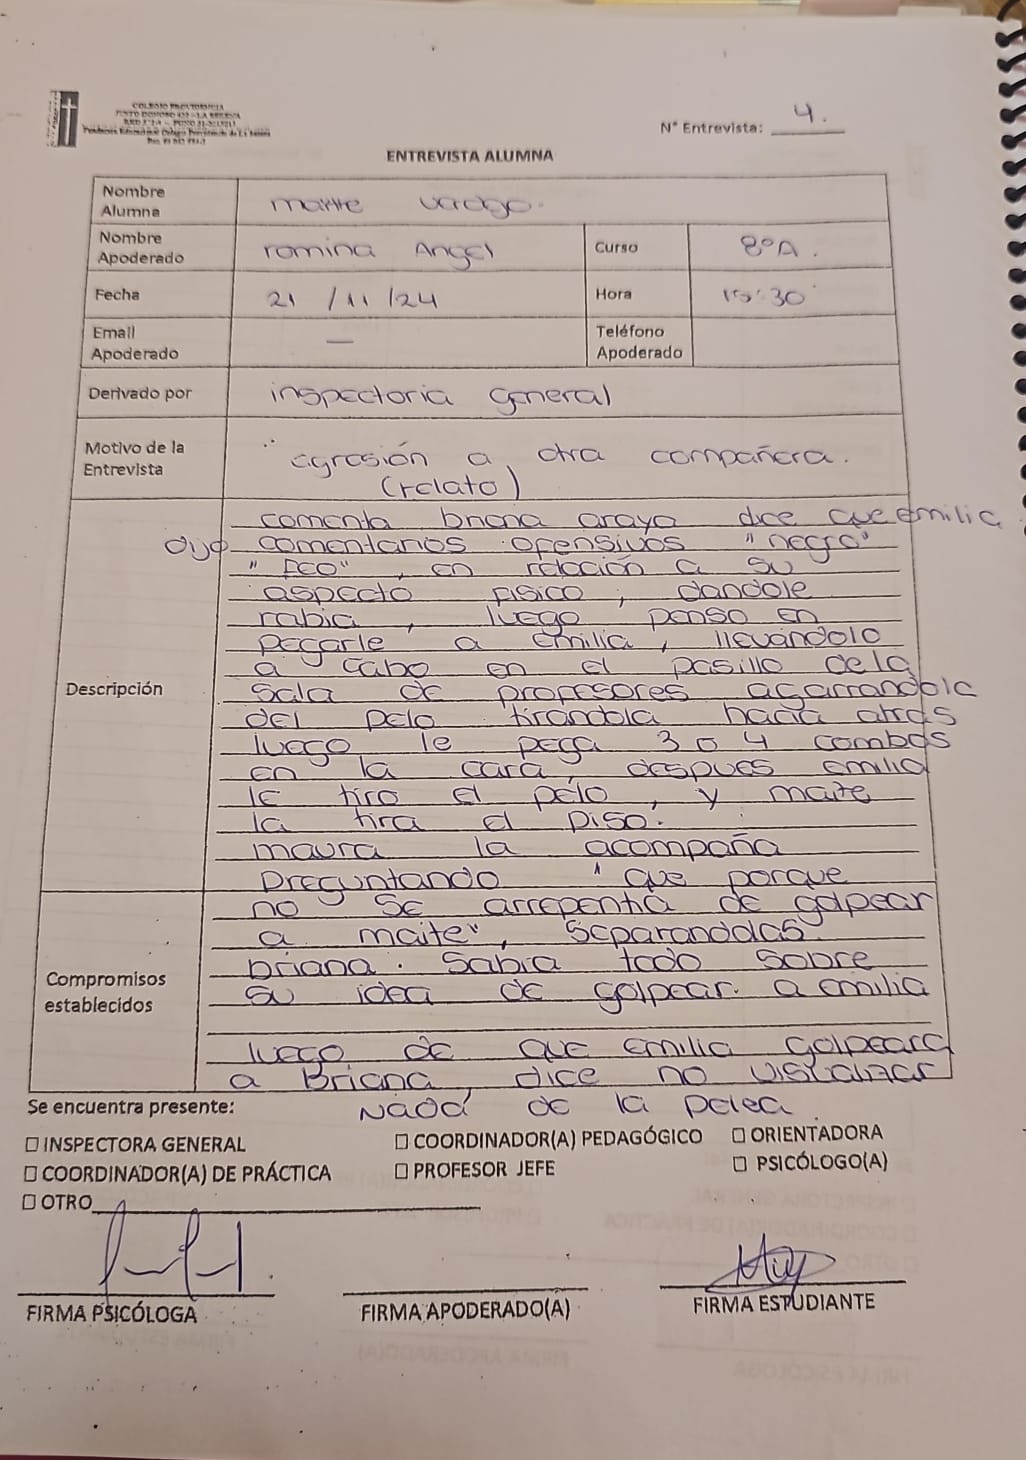 COLEGIO PROVIDENCIA
Nº Entrevista: 4.
ENTREVISTA ALUMNA
Nombre Alumna
Nombre Apoderado romina Angel Curso 8ºA.
Fecha 21 /11 /24 Hora :30
Email Apoderado — Teléfono Apoderado
Derivado por inspectoria general
Motivo de la Entrevista agresión a otra compañera.
(relato)
Descripción
comenta briana araya dice que emilia
dijo comentarios ofensivos "negra"
"FEO", en relación a su
aspecto fisico, dandole
rabia, luego penso en
pegarle a emilia, llevándolo
a cabo en el pasillo de la
sala de profesores agarrandola
del pelo tirandola hacia atras
luego le pega 3 o 4 combos
en la cara, despues emilia
le tiro el pelo, y maite
la tira el piso.
maura la acompaña
preguntando " que porque
no se arrepentia de golpear
a maite", separandolas
briana. sabia todo sobre
su idea de golpear. a emilia
Compromisos establecidos
luego de que emilia golpeara
a Briana, dice no visualizar
Nada de la pelea
Se encuentra presente:
☐ INSPECTORA GENERAL ☐ COORDINADOR(A) PEDAGÓGICO ☐ ORIENTADORA
☐ COORDINADOR(A) DE PRÁCTICA ☐ PROFESOR JEFE ☐ PSICÓLOGO(A)
☐ OTRO
FIRMA PSICÓLOGA FIRMA APODERADO(A) FIRMA ESTUDIANTE